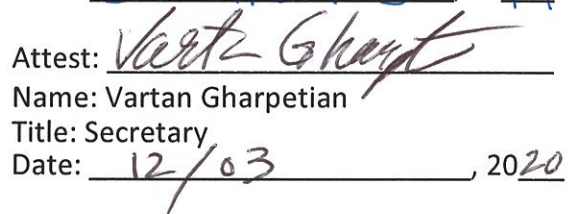 Attest: Vartan Gharpetian
Name: Vartan Gharpetian
Title: Secretary
Date: 12/03, 2020